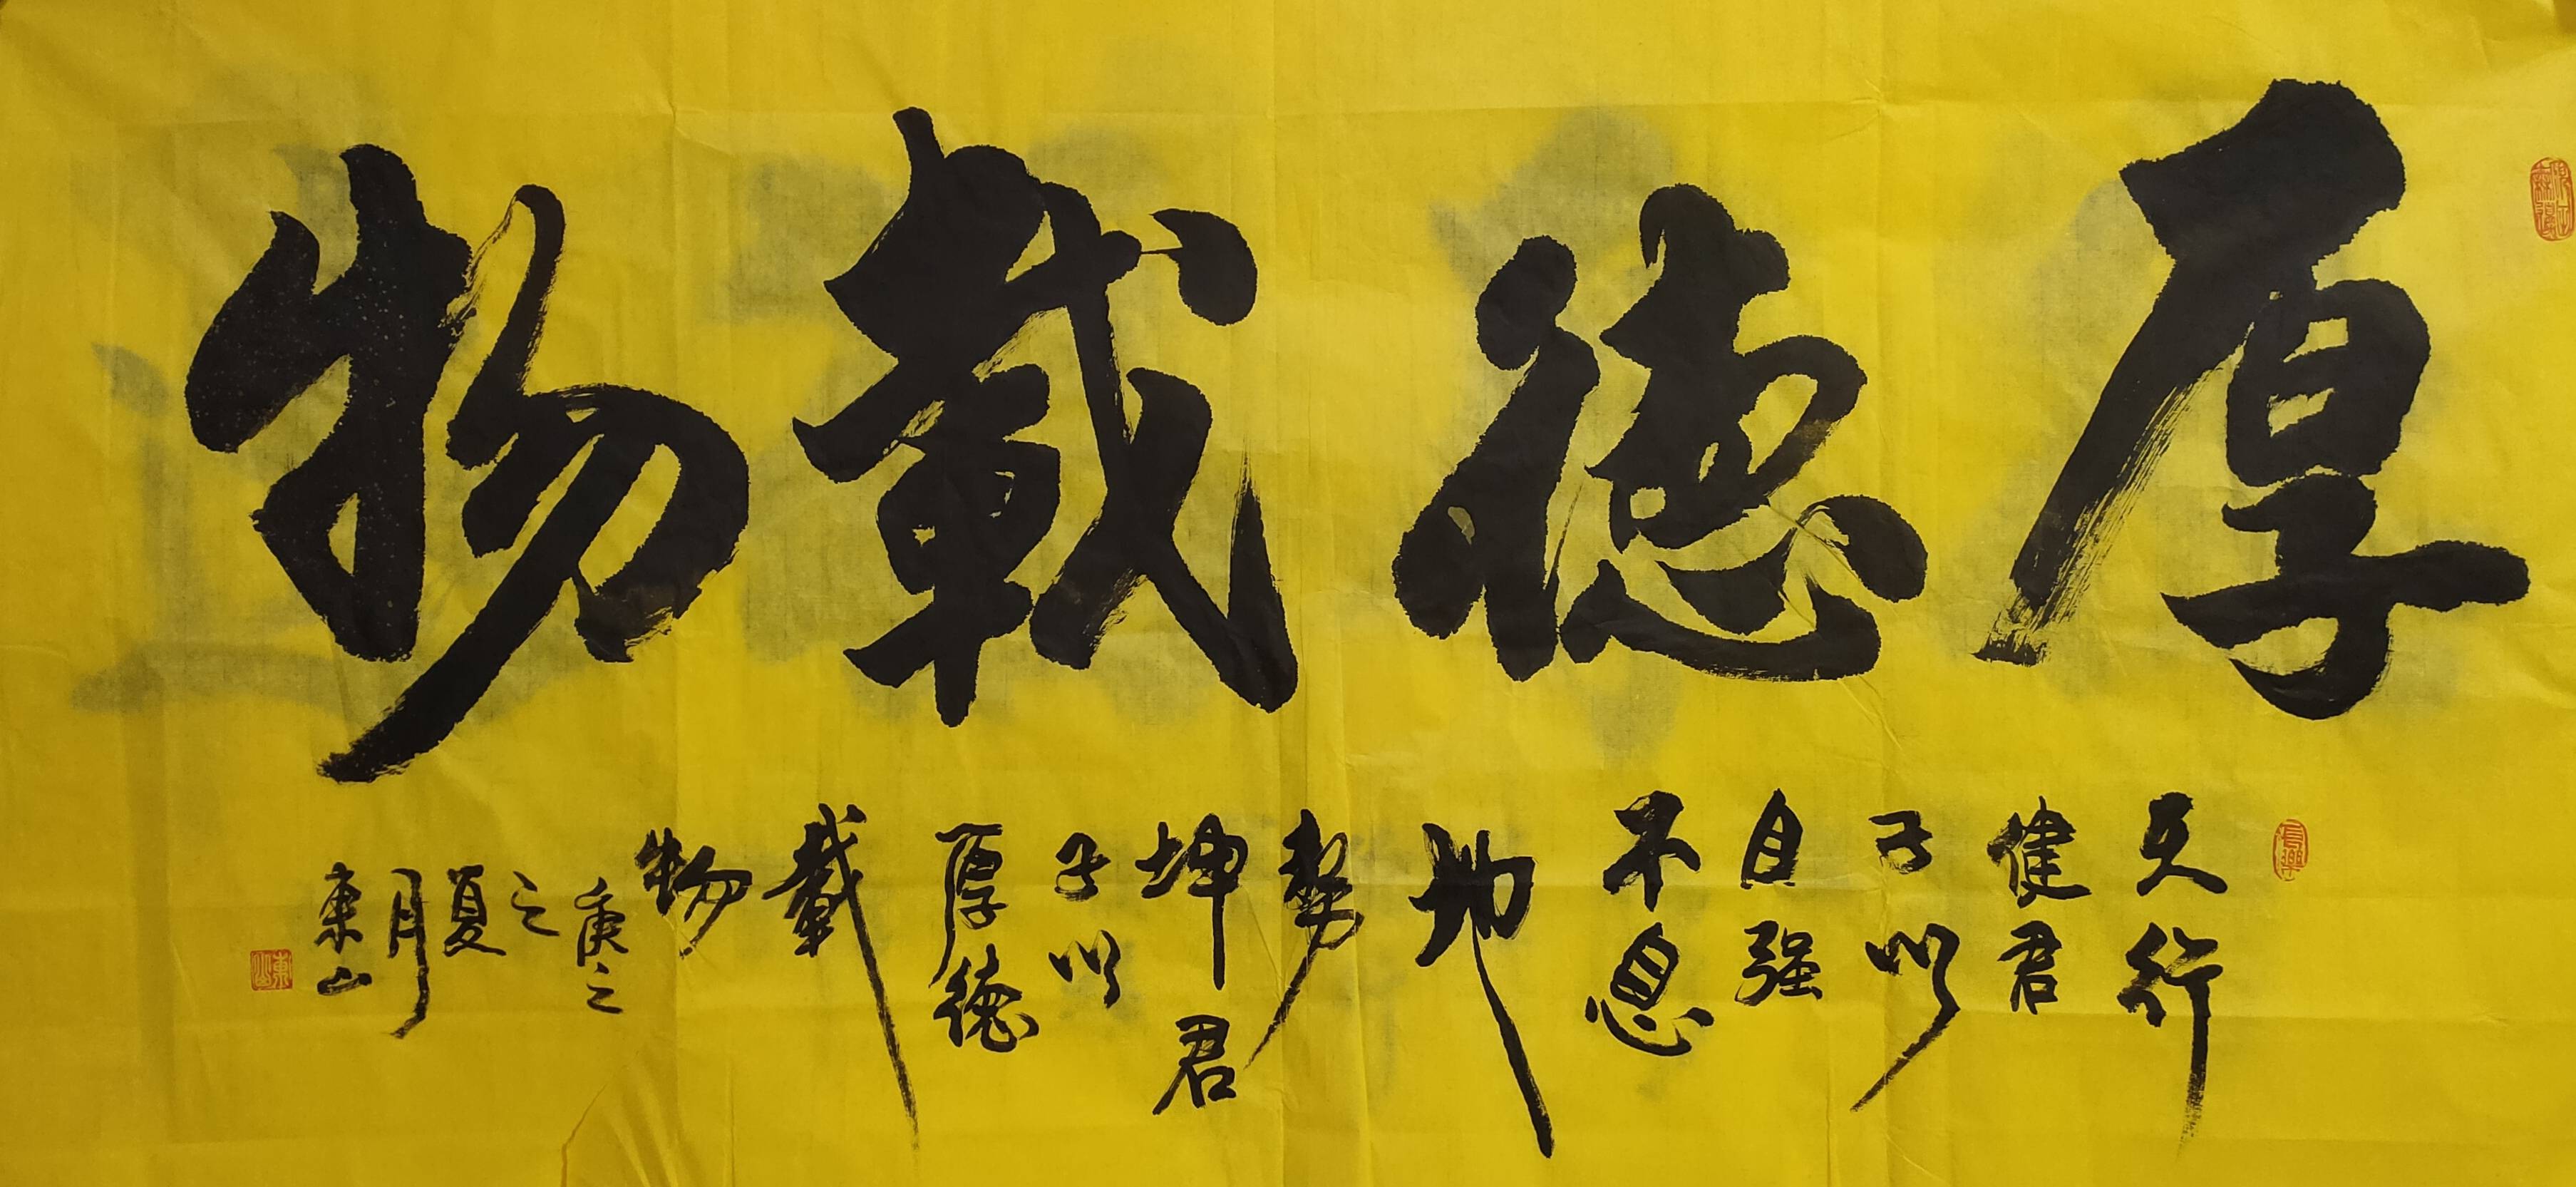 厚德載物
天行
健君
子以
自强
不息
地
势
坤君
子以
厚德
載
物
庚
之
夏
月
東山
東山